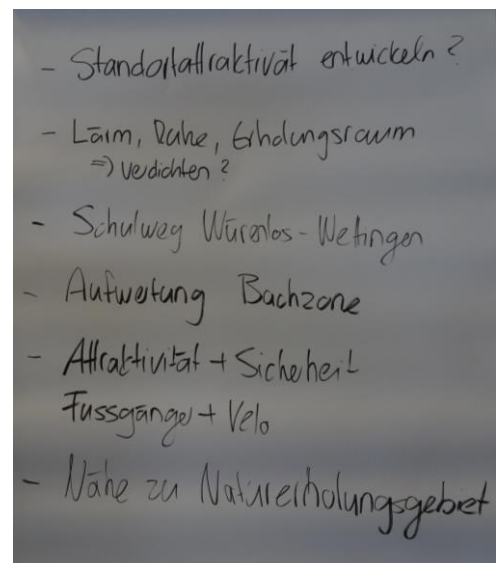 - Standortattraktivät entwickeln?
- Lärm, Ruhe, Erholungsraum
=> verdichten?
- Schulweg Würenlos - Wettingen
- Aufwertung Bachzone
- Attraktivität + Sicherheit
Fussgänger + Velo
- Nähe zu Naturerholungsgebiet